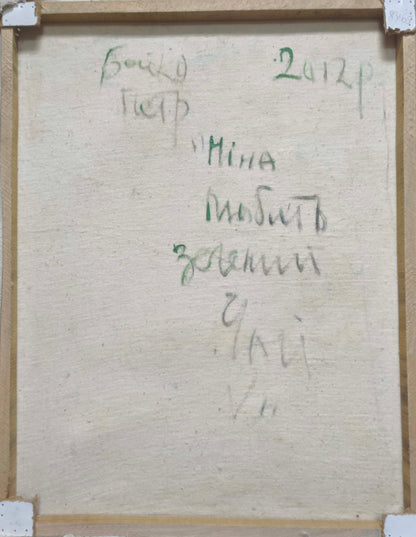 Бойко 2012р
Петр
"Ніна
любить
зелений
чай